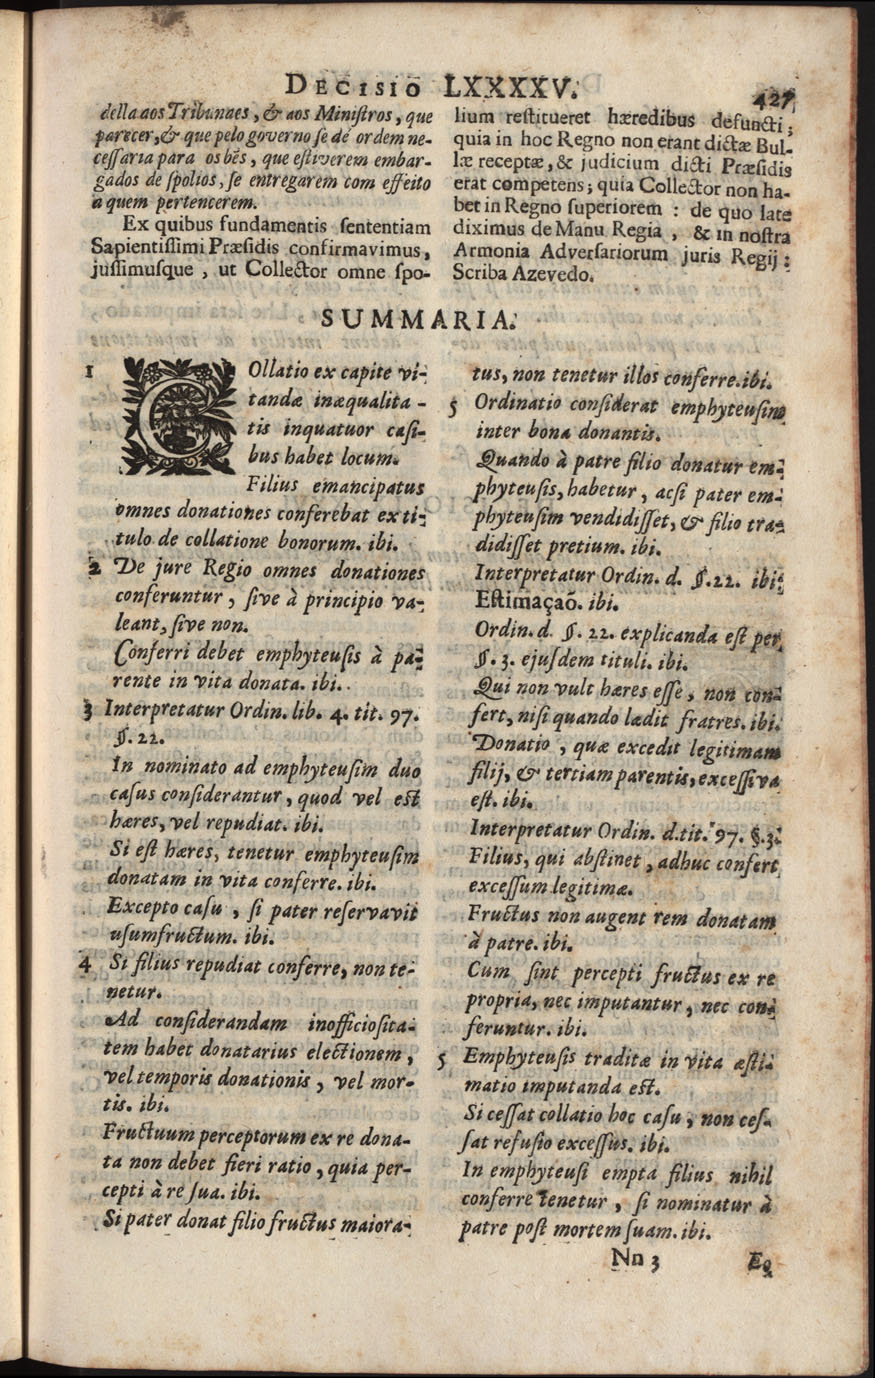 DECISIO LXXXXV.
427
della aos Tribunaes, & aos Miniſtros, que
parecer, & que pelo governo ſe dé ordem ne-
ceſſaria para os bẽs, que eſtiverem embar-
gados de ſpolios, ſe entregarem com effeito
a quem pertencerem.
Ex quibus fundamentis ſententiam
Sapientiſſimi Præſidis confirmavimus,
juſſimuſque, ut Collector omne ſpo-
lium reſtitueret hæredibus defuncti;
quia in hoc Regno non erant dictæ Bul-
læ receptæ, & judicium dicti Præſidis
erat competens; quia Collector non ha-
bet in Regno ſuperiorem : de quo late
diximus de Manu Regia, & in noſtra
Armonia Adverſariorum juris Regij :
Scriba Azevedo.
SUMMARIA.
1 COllatio ex capite vi-
tandæ inæqualita-
tis inquatuor caſi-
bus habet locum.
Filius emancipatus
omnes donationes conferebat ex ti-
tulo de collatione bonorum. ibi.
2 De jure Regio omnes donationes
conferuntur, ſive à principio va-
leant, ſive non.
Conferri debet emphyteuſis à pa-
rente in vita donata. ibi.
3 Interpretatur Ordin. lib. 4. tit. 97.
§. 22.
In nominato ad emphyteuſim duo
caſus conſiderantur, quod vel eſt
hæres, vel repudiat. ibi.
Si eſt hæres, tenetur emphyteuſim
donatam in vita conferre. ibi.
Excepto caſu, ſi pater reſervavit
uſumfructum. ibi.
4 Si filius repudiat conferre, non te-
netur.
Ad conſiderandam inofficioſita-
tem habet donatarius electionem,
vel temporis donationis, vel mor-
tis. ibi.
Fructuum perceptorum ex re dona-
ta non debet fieri ratio, quia per-
cepti à re ſua. ibi.
Si pater donat filio fructus maiora-
tus, non tenetur illos conferre. ibi.
5 Ordinatio conſiderat emphyteuſim
inter bona donantis.
Quando à patre filio donatur em-
phyteuſis, habetur, acſi pater em-
phyteuſim vendidiſſet, & filio tra-
didiſſet pretium. ibi.
Interpretatur Ordin. d. §. 22. ibi.
Eſtimaçaõ. ibi.
Ordin. d. §. 22. explicanda eſt per
§. 3. ejuſdem tituli. ibi.
Qui non vult hæres eſſe, non con-
fert, niſi quando lædit fratres. ibi.
Donatio, quæ excedit legitimam
filij, & tertiam parentis, exceſſiva
eſt. ibi.
Interpretatur Ordin. d. tit. 97. §. 3.
Filius, qui abſtinet, adhuc confert
exceſſum legitimæ.
Fructus non augent rem donatam
à patre. ibi.
Cum ſint percepti fructus ex re
propria, nec imputantur, nec con-
feruntur. ibi.
5 Emphyteuſis traditæ in vita æſti-
matio imputanda eſt.
Si ceſſat collatio hoc caſu, non ceſ-
ſat refuſio exceſſus. ibi.
In emphyteuſi empta filius nihil
conferre tenetur, ſi nominatur à
patre poſt mortem ſuam. ibi.
Nn 3
Eq